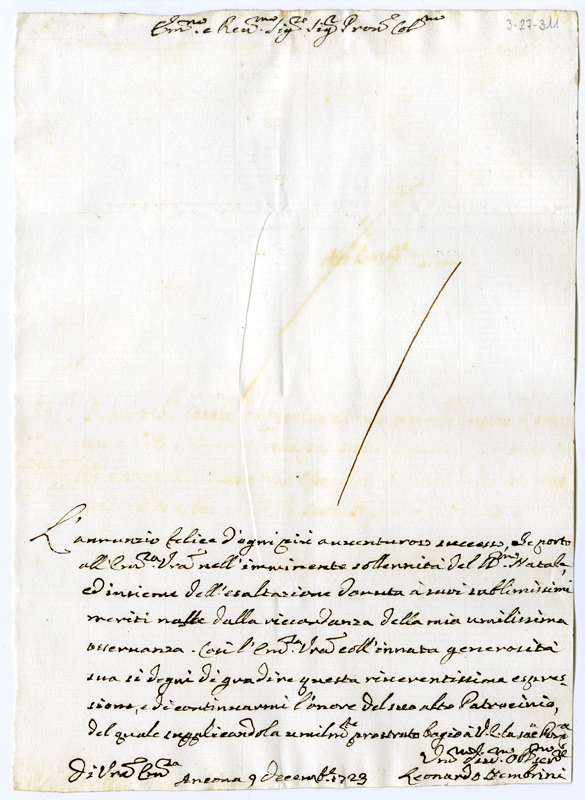 3-27-311
Em.mo e Rev.mo Sig.re Sig.r Pron.e Col.mo
L'annunzio felice d'ogni più auuenturoso successo, che porto
all'Em.za V'ra nell'imminente sollennità del S. Natale,
ed insieme dell'esaltazione douuta à suoi sublimissimi
meriti nasce dalla riccordanza della mia umilissima
osseruanza. Così l'Em.za V'ra coll'innata generosità
sua si degni di gradire questa riuerentissima espres-
sione, e di continuarmi l'onore del suo alto Patrocinio,
del quale supplicandola umilm.te prostrato bagio à V. E. la Sac. Porpora
Di V'ra Em.za Ancona 9 decemb.e 1729
Leonardo Dembrini